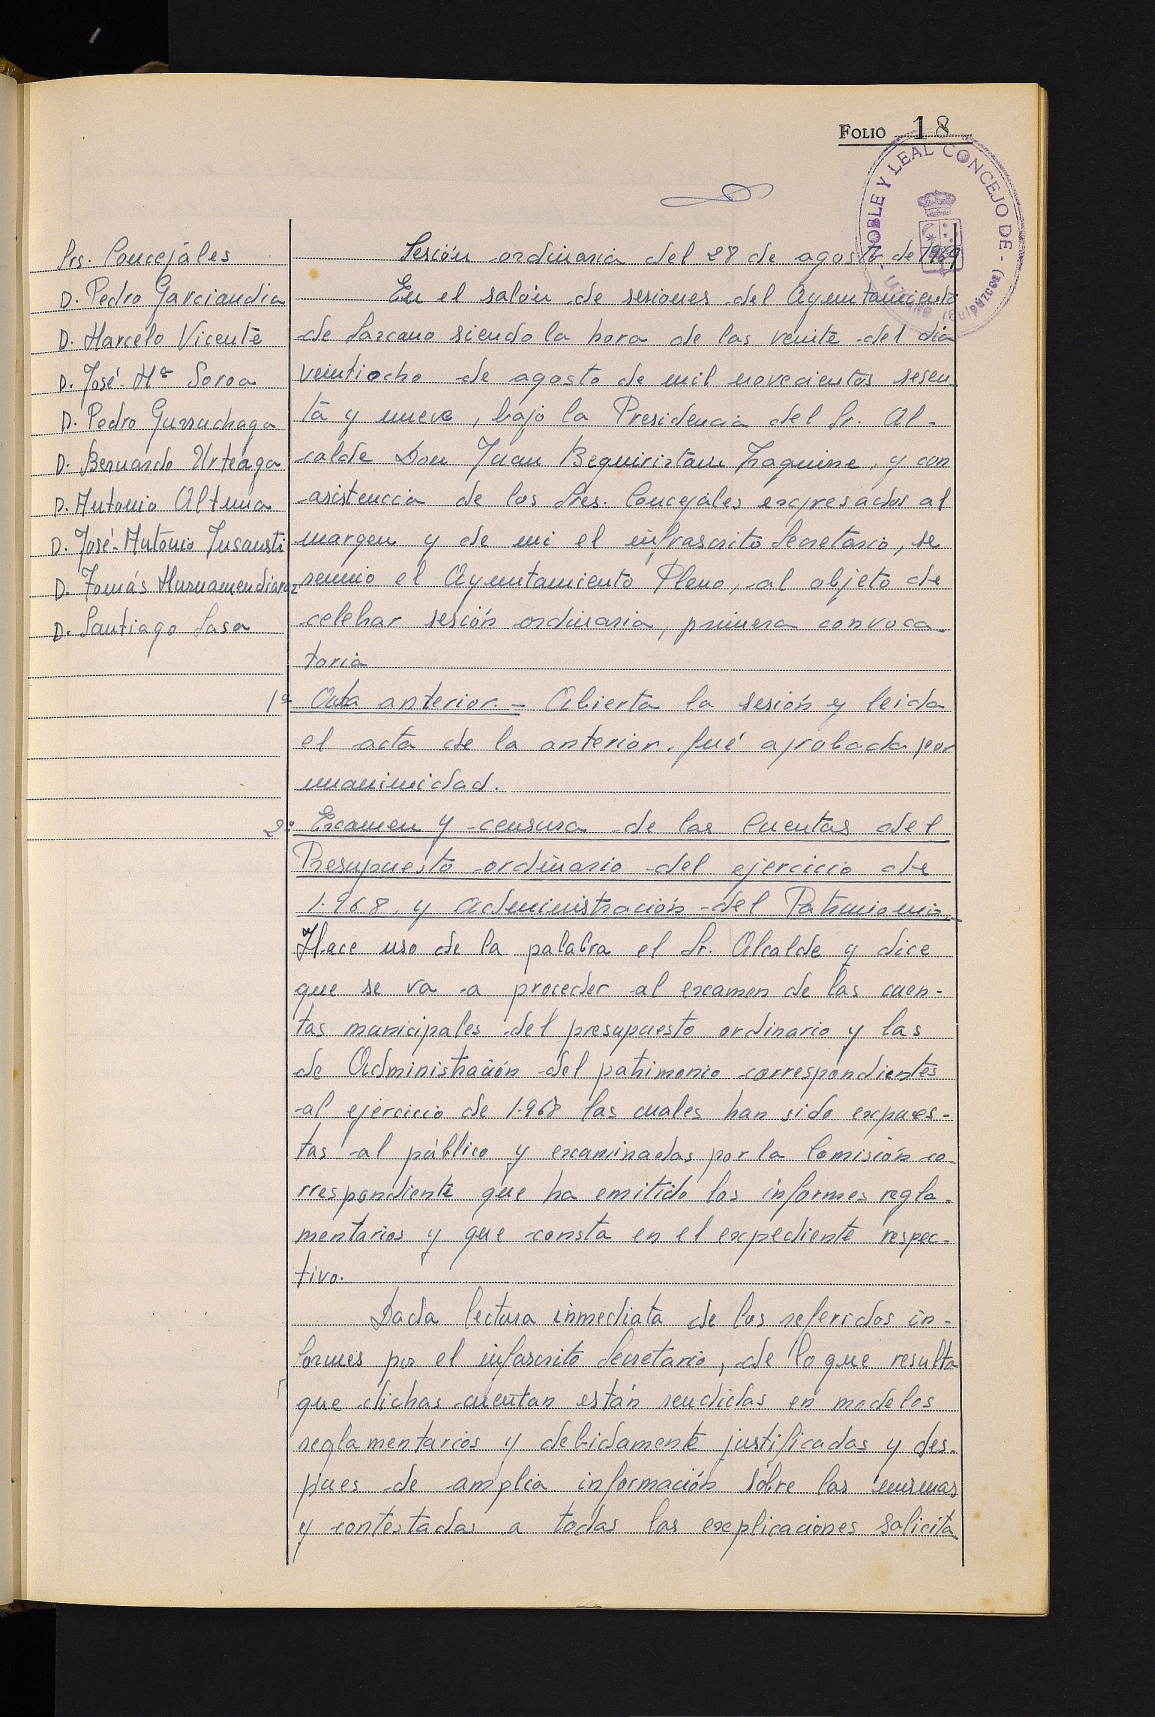 FOLIO 18
NOBLE Y LEAL CONCEJO DE - LAZCANO (Guipúzcoa) -
Srs. Concejáles
D. Pedro Garciandia
D. Marcelo Vicente
D. José-Mª Soroa
D. Pedro Gurruchaga
D. Bernardo Urteaga
D. Antonio Altuna
D. José-Antonio Insausti
D. Tomás Murnamendiaraz
D. Santiago Lasa
Sesión ordinaria del 28 de agosto de 1969
En el salón de sesiones del Ayuntamiento
de Lazcano siendo la hora de las veinte del dia
veintiocho de agosto de mil novecientos sesen
ta y nueve, bajo la Presidencia del Sr. Al-
calde Don Juan Beguiristain, y con
asistencia de los Sres. Concejáles expresados al
margen y de mi el infrascrito Secretario, se
reunio el Ayuntamiento Pleno, al objeto de
celebrar sesión ordinaria, primera convoca
toria
1º Acta anterior - Abierta la sesión y leida
el acta de la anterior, fué aprobada por
unanimidad.
2º Examen y censura de las Cuentas del
Presupuesto ordinario del ejercicio de
1.968, y administración del Patrimonio
Hace uso de la palabra el Sr. Alcalde y dice
que se va a proceder al examen de las cuen-
tas municipales del presupuesto ordinario y las
de Administración del patrimonio correspondientes
al ejercicio de 1.968 las cuales han sido expues-
tas al público y examinadas por la Comisión co-
rrespondiente que ha emitido los informes regla-
mentarios y que consta en el expediente respec-
tivo.
Dada lectura inmediata de los referidos in-
formes por el infascrito Secretario, de lo que resulta
que dichas cuentan están rendidas en modelos
reglamentarios y debidamente justificadas y des-
pues de amplia información sobre las mismas
y contestadas a todas las explicaciones solicita